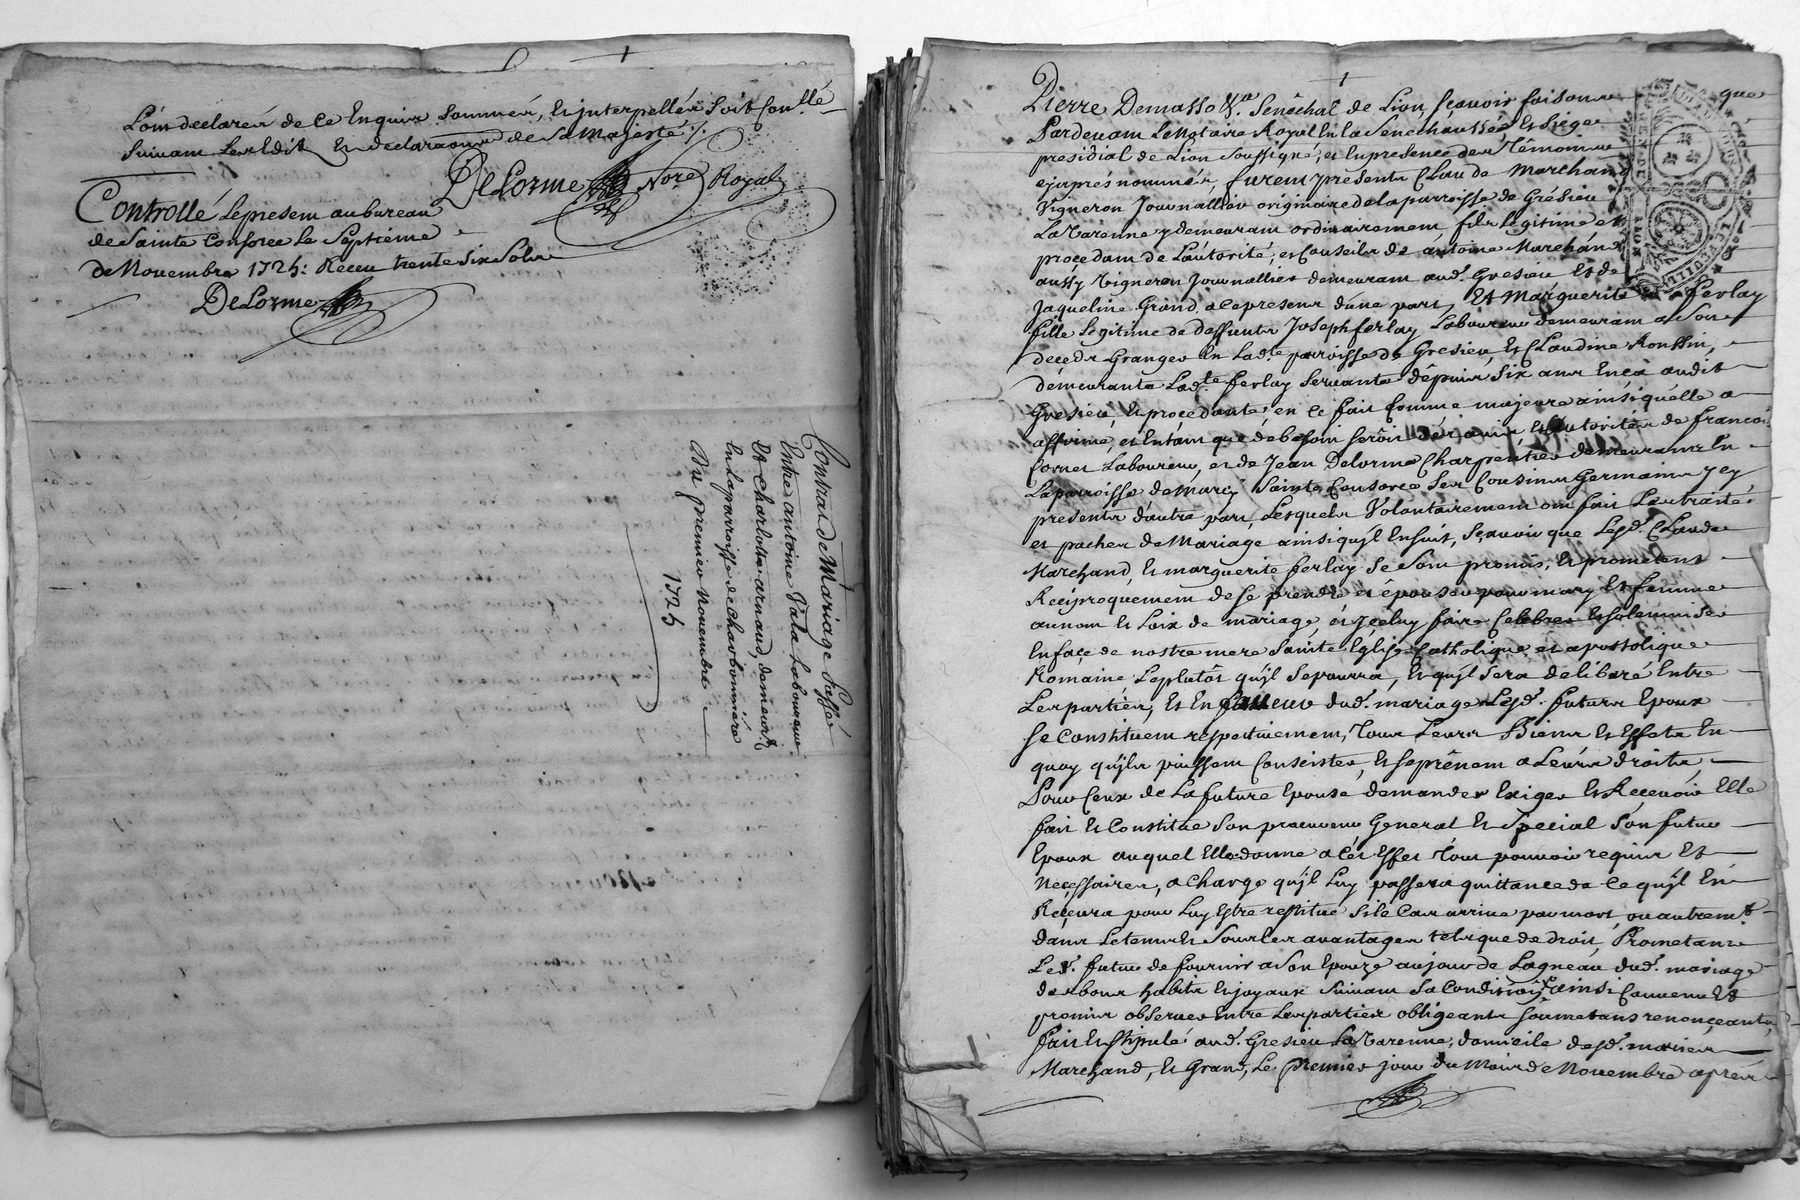 L'oin declarés de ce Enquis sommés, et interpellés soit Con.llé
suivant les Edits et declarations de Sa Majesté /.
DeLorme Nore Royal
Controllé le present au bureau
de Sainte Consorce le Septieme
de Novembre 1725: Receu trente six Sols
DeLorme
Contrat de Mariage Passé
Entre antoine Pala Laboureur
Et Charlotte arnaud, demeurt.
En la parroisse de Charbonniere
Du premier Novembre
1725
Pierre Demasso Sr. Senêchal de Lion, sçavoir faisons que
Pardevant Le Notaire Royal En la Senêchaussée, et siege
presidial de Lion soussigné, et en presence des Têmoins
cy aprés nommés, furent presents Claude Marchand
Vigneron Journallier originaire de la parroisse de Grésieu
La Varenne y demeurant ordinairement fils Legitime et
procedant de L'autorité, et Conseils de antoine Marchand
aussy Vigneron Journallier demeurant aud. Gresieu Et de
Jaqueline Grand a ce present d'une part, Et Marguerite Ferlay
fille Legitime de deffunts Joseph ferlay Laboureur demeurant a son
decéds Granger En Lad.te parroisse de Gresieu, et Claudine Roussin,
demeurante Lad.te ferlay servante depuis six ans En ça audit
Gresieu, et procedante en ce fait comme majeure ainsi qu'elle a
affirmé, et Entant que de besoin seroit de l'avis, et autorités de francois
Cornet Laboureur, et de Jean Delorme Charpentier demeurants En
La parroisse de Marcy Sainte Consorce ses Cousins Germains icy
presents d'autre part, Lesquels Volontairement ont fait Les traités
et paches de Mariage ainsi qu'il Ensuit, sçavoir que Lesd. Claude
Marchand, et marguerite ferlay se sont promis, et promettent
Reciproquement de se prendre et épouser pour mary et femme
au nom et Loix de mariage, et iceluy faire Celebrer et solemniser
En façe de nostre mere Sainte Eglise Catholique, et apostolique
Romaine, Le plutôt qu'il se pourra, et qu'il sera deliberé Entre
Les parties, Et En faveur dud. mariage Lesd. futurs Epoux
se Constituent respectivement, Tous Leurs Biens Et Effets En
quoy qu'ils puissent Consister, et se prênent a Leurs droits,
Pour Ceux de La future Epouse demander Exiger Et Recevoir Elle
fait et Constitue son procureur General Et Special son futur
Epoux auquel Elle donne a Cet Effet Tout pouvoir requis Et
Necessaire, a Charge qu'il Luy passera quittance de Ce qu'il En
Recevra pour Luy Estre restitué si le Cas arrive par mort, ou autremt
dans Le tems et sous les avantages tels que de droit, Prometant
Led. futur de fournir a son Epouze au jour de Lagneau dud. mariage
des bons habits et joyaux suivant sa Condition, ainsi Convenu Et
promis observer Entre Les parties obligeants soumetans renonçeants,
fait et stipulé aud. Gresieu La Varenne, domicile desd. mariés
Marchand, et Grand, Le premier jour du Mois de Novembre aprés